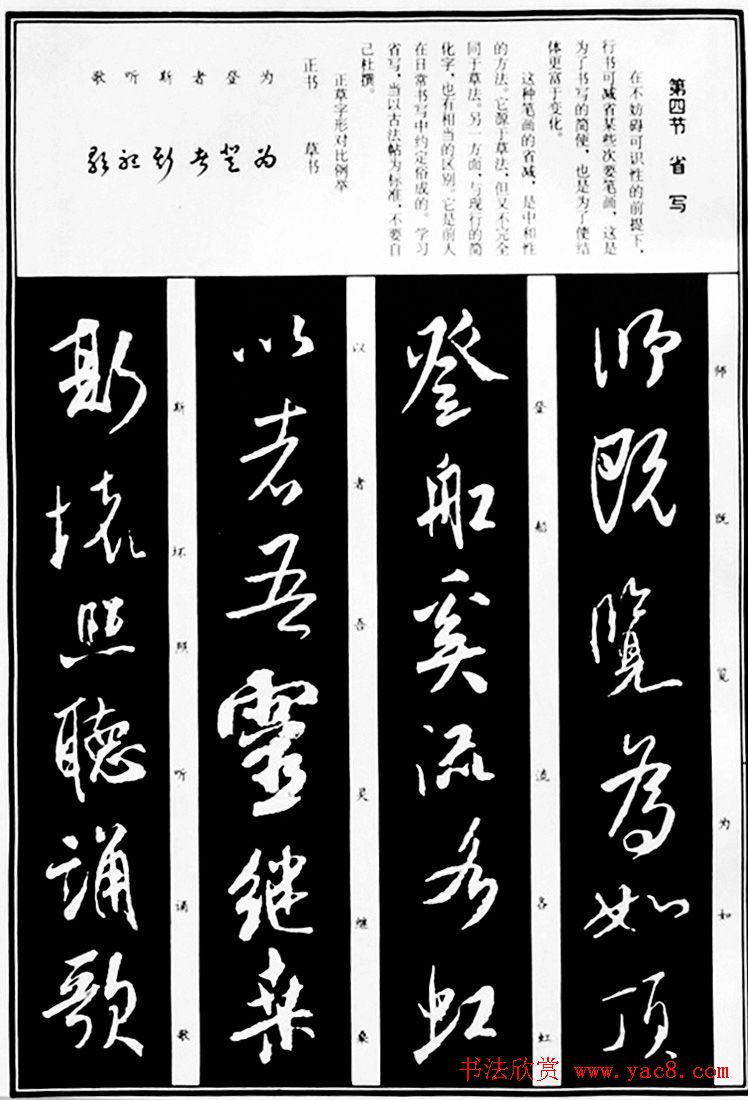 第四节 省 写
在不妨碍可识性的前提下,
行书可减省某些次要笔画,这是
为了书写的简便,也是为了使结
体更富于变化。
这种笔画的省减,是中和性
的方法。它源于草法,但又不完全
同于草法。另一方面,与现行的简
化字,也有相当的区别。它是前人
在日常书写中约定俗成的。学习
省写,当以古法帖为标准,不要自
己杜撰。
正草字形对比例举
正书 草书
为 为
登 登
者 者
斯 斯
听 听
歌 歌
师 既 览 为 如
师既覽為如頂
登 船 流 各 虹
登船奚流各虹
以 者 吾 灵 继 桑
以者吾靈継桑
斯 坏 照 听 诵 歌
斯壊照聽誦歌
书法欣赏 www.yac8.com